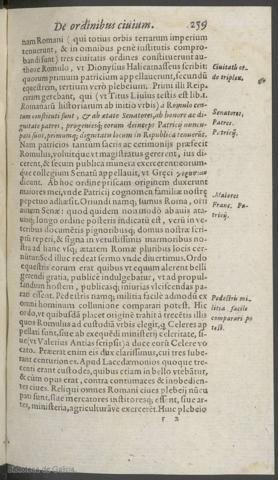 De ordinibus ciuium. 259
nam Romani (qui totius orbis terrarum imperium
tenuerunt, & in omnibus penè institutis compro-
bandi sunt) tres ciuitatis ordines constituerunt au-
thore Romulo, vt Dionysius Halicarnasseus scribit:
quorum primum patricium appellauerunt, secundũ
equestrem, tertium verò plebeium. Primi illi Reip.
curam gerebant, qui (vt Titus Liuius testis est lib. 1.
Romanarũ historiarum ab initio vrbis) à Romulo cen-
tum constituti sunt, & ab ætate Senatores, ab honore ac di-
gnitate patres, progeniesq́; eorum deinceps Patricij nuncu-
pati sunt, primumq; dignitatis locum in Republica tenuerũt.
Nam patricios tantùm sacris ac cerimonijs præfecit
Romulus, voluitque vt magistratus gererent, ius di-
cerent, & secum publica munera exercerent: eorum-
que collegium Senatũ appellauit, vt Græci
dicunt. Ab hoc ordine priscam originem duxerunt
maiores mei, vnde Patricij cognomen familiæ nostræ
pepetuo adhæsit. Oriundi namq; sumus Roma, ori-
auum Senæ: quod quidem non modò ab auis ata-
uisq; longo ordine posteris indicatũ est, verũ in ve-
teribus documẽtis pignoribusq; domus nostræ scri-
ptũ reperi, & signa in vetustissimis marmoribus no-
stra ad hanc vsq; ætatem Romæ pluribus locis cer-
nuntur. Sed illuc redeat sermo vnde diuertimus. Ordo
equestris eorum erat quibus vt equum alerent belli
gerendi gratia, publicè indulgebatur, vt ad propul-
sandum hostem, publicasq; iniurias vlciscendas pa-
rati essent. Pedestris namq; militia facilè admodũ ex
omni hominum colluuione comparari potest. Hic
ordo, vt quibusdã placet originẽ à trecẽtis illis traxit
quos Romulus ad custodiã vrbis elegit, q; Celeres ap-
pellati sunt, siue ab exequẽdi ministerij celeritate, si-
ue (vt Valerius Antias scripsit) à duce eorũ Celere vo-
cato. Præerant enim eis dux clarissimus, cui tres sube-
rant centuriones. Apud Lacedæmonios quoque tre-
centi erant custodes, quibus etiam in bello vtebãtur,
& cùm opus erat, contra contumaces & inobedien-
tes ciues. Reliqui omnes Romani ciues plebeij nũcu-
pati sunt, siue mercatores institoresq; essent, siue ar-
tes, ministeria, agriculturáve exercerẽt. Huic plebeio
r 2
Ciuitatis or-
do triplex.
Senatores.
Patres.
Patricij.
Maiores
Franc. Pa-
tricij.
Pedestris mi-
litia facilè
comparari po
test.
Biblioteca de Galicia